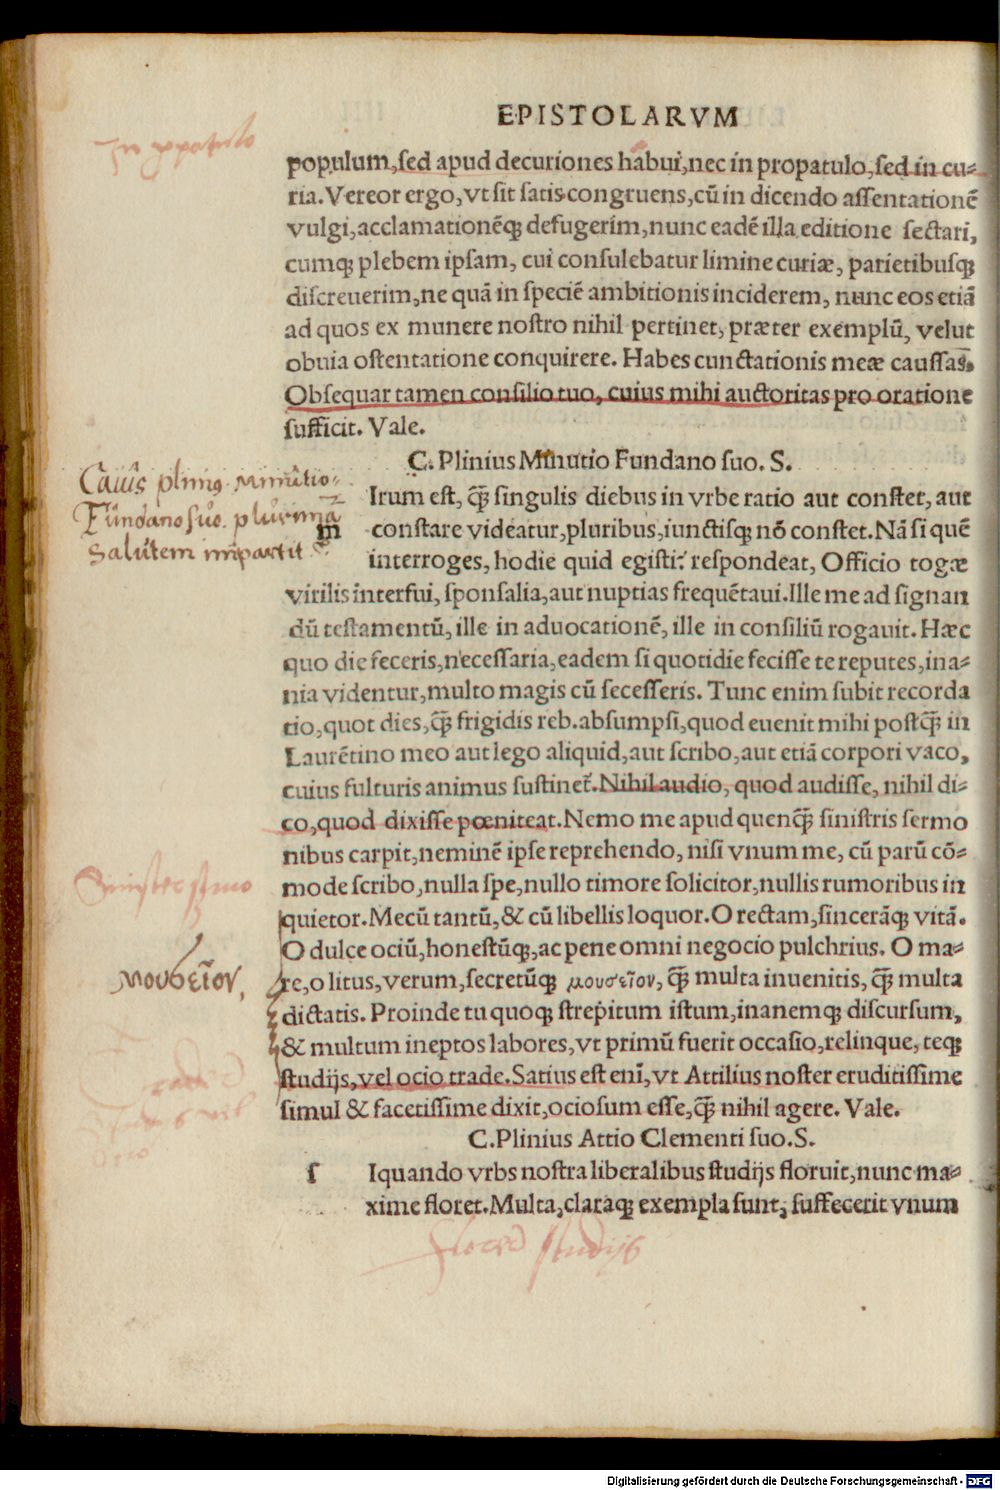 EPISTOLARVM
In ppatulo
populum,sed apud decuriones habui,nec in propatulo,sed in cu-
ria.Vereor ergo,vt sit satis congruens,cū in dicendo assentationē
vulgi,acclamationēq; defugerim,nunc eadē illa editione sectari,
cumq; plebem ipsam, cui consulebatur limine curiæ, parietibusq;
discreuerim,ne quā in speciē ambitionis inciderem, nunc eos etiā
ad quos ex munere nostro nihil pertinet, præter exemplū, velut
obuia ostentatione conquirere. Habes cunctationis meæ caussas.
Obsequar tamen consilio tuo, cuius mihi auctoritas pro oratione
sufficit. Vale.
C. Plinius Minutio Fundano suo. S.
Caius plinius Minutio
Fundano suo plurima
salutem impartit
m Irum est, q̃ singulis diebus in vrbe ratio aut constet, aut
constare videatur,pluribus,iunctisq; nō constet.Nā si quē
interroges, hodie quid egisti: respondeat, Officio togæ
virilis interfui, sponsalia,aut nuptias frequētaui.Ille me ad signan
dū testamentū, ille in aduocationē, ille in consiliū rogauit. Hæc
quo die feceris,necessaria,eadem si quotidie fecisse te reputes,ina-
nia videntur,multo magis cū secesseris. Tunc enim subit recorda
tio,quot dies,q̃ frigidis reb.absumpsi,quod euenit mihi postq̃ in
Laurētino meo aut lego aliquid,aut scribo,aut etiā corpori vaco,
cuius fulturis animus sustinet̃.Nihil audio, quod audisse, nihil di-
co,quod dixisse pœniteat.Nemo me apud quenq̃ sinistris sermo
nibus carpit,neminē ipse reprehendo, nisi vnum me, cū parū cō-
mode scribo,nulla spe,nullo timore solicitor,nullis rumoribus in
Sinister sermo
quietor.Mecū tantū,& cū libellis loquor.O rectam,sincerāq; vitā.
O dulce ociū,honestūq;,ac pene omni negocio pulchrius. O ma-
μουσεῖον,
re,o litus,verum,secretūq; μουσεῖον, q̃ multa inuenitis, q̃ multa
dictatis. Proinde tu quoq; strepitum istum,inanemq; discursum,
& multum ineptos labores,vt primū fuerit occasio,relinque, teq;
studijs,vel ocio trade.Satius est enī,vt Attilius noster eruditissime
simul & facetissime dixit,ociosum esse,q̃ nihil agere. Vale.
C.Plinius Attio Clementi suo.S.
s Iquando vrbs nostra liberalibus studijs floruit,nunc ma-
xime floret.Multa,claraq; exempla sunt, suffecerit vnum
studijs
Digitalisierung gefördert durch die Deutsche Forschungsgemeinschaft - DFG